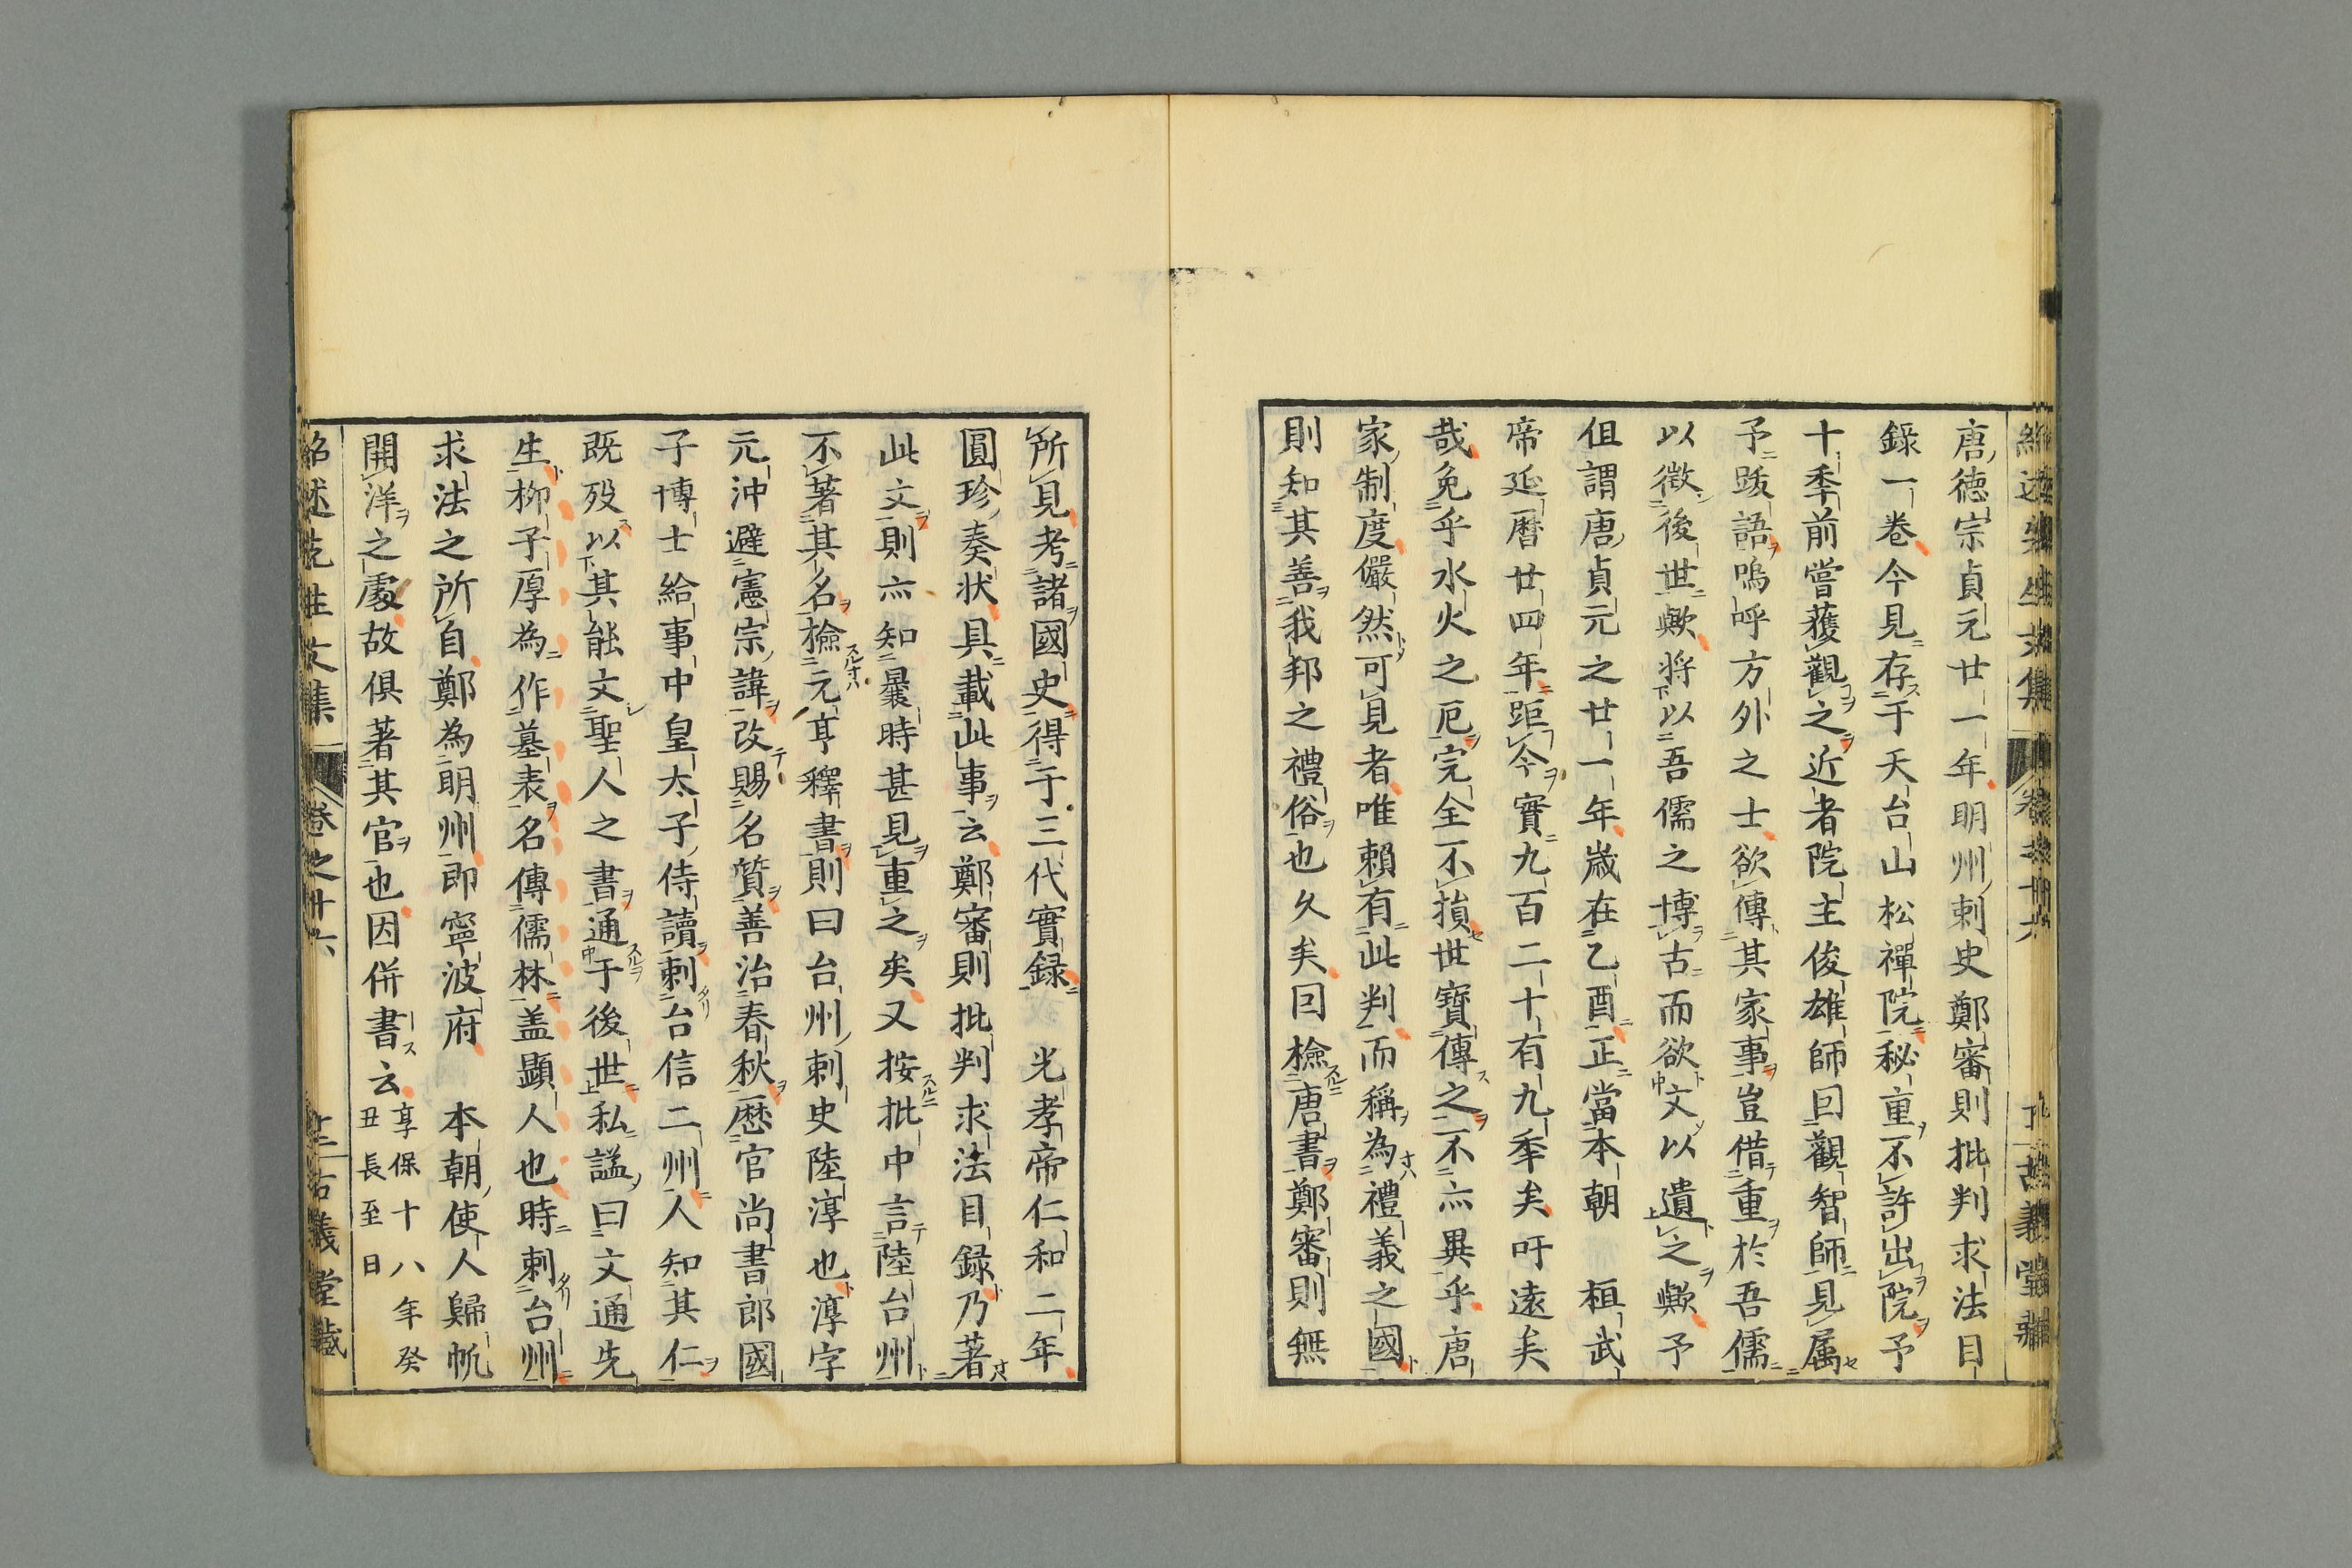 唐德宗貞元廿一年明州刺史鄭審則批判求法目
錄一卷今見存于天台山松禪院秘重不許出院予
十季前嘗獲觀之近者院主俊雄師回觀智師見属
予跋語嗚呼方外之士欲傳其家事豈借重於吾儒
以徵後世歟将以吾儒之博古而欲文以遺之歟予
伹謂唐貞元之廿一年歲在乙酉正當本朝 桓武
帝延暦廿四年距今實九百二十有九季矣吁遠矣
哉免乎水火之厄完全不損世寶傳之不亦異乎唐
家制度儼然可見者唯賴有此判而稱為禮義之國
則知其善我邦之禮俗也久矣回檢唐書鄭審則無
所見考諸國史得于三代實録 光孝帝仁和二年
圓珍奏状具載此事云鄭審則批判求法目録乃著
此文則亦知曩時甚見重之矣又按批中言陸台州
不著其名檢元亨釋書則曰台州刺史陸淳也淳字
元沖避憲宗諱改賜名質善治春秋歴官尚書郎國
子博士給事中皇太子侍讀刺台信二州人知其仁
既歿以其能文聖人之書通于後世私謚曰文通先
生柳子厚為作墓表名傳儒林盖顯人也時刺台州
求法之所自鄭為明州即寧波府 本朝使人歸帆
開洋之處故俱著其官也因併書云 享保十八年癸
丑長至日
紹述先生文集 卷之廿六 十二 古義堂藏